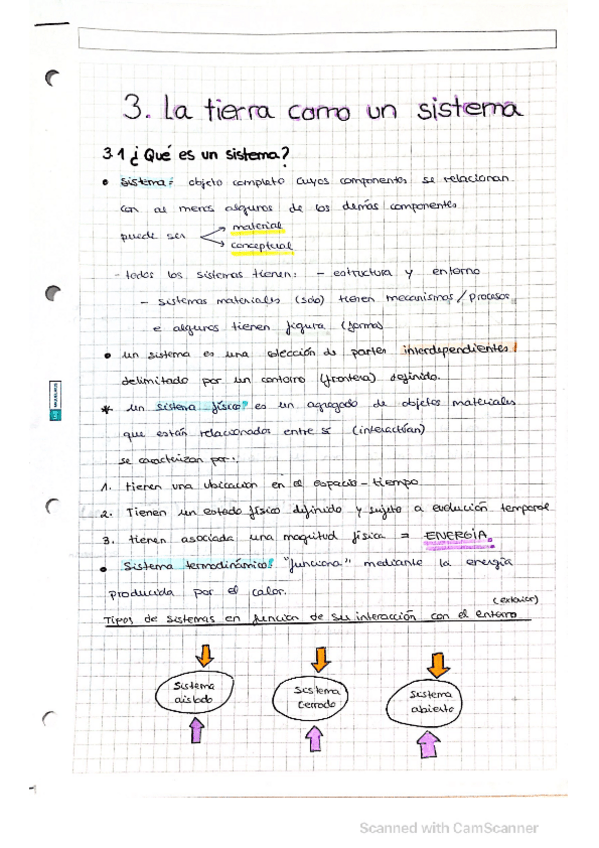 3. La tierra como un sistema
3.1 ¿Qué es un sistema?
• sistema: objeto completo cuyos componentes se relacionan
con al menos algunos de los demás componentes
puede ser material
conceptual
- todos los sistemas tienen: - estructura y entorno
- sistemas materiales (solo) tienen mecanismos / procesos
e algunos tienen figura (forma)
• un sistema es una colección de partes interdependientes
delimitado por un contorno (frontera) definido.
* un sistema físico es un agregado de objetos materiales
que están relacionados entre sí (interactúan)
se caracterizan por:
1. tienen una ubicación en el espacio-tiempo
2. Tienen un estado físico definido y sujeto a evolución temporal
3. tienen asociada una magitud física = ENERGÍA.
• Sistema termodinámico: "funciona" mediante la energía
producida por el calor.
(exterior)
Tipos de sistemas en función de su interacción con el entorno
Sistema aislado
Sistema cerrado
Sistema abierto
Scanned with CamScanner